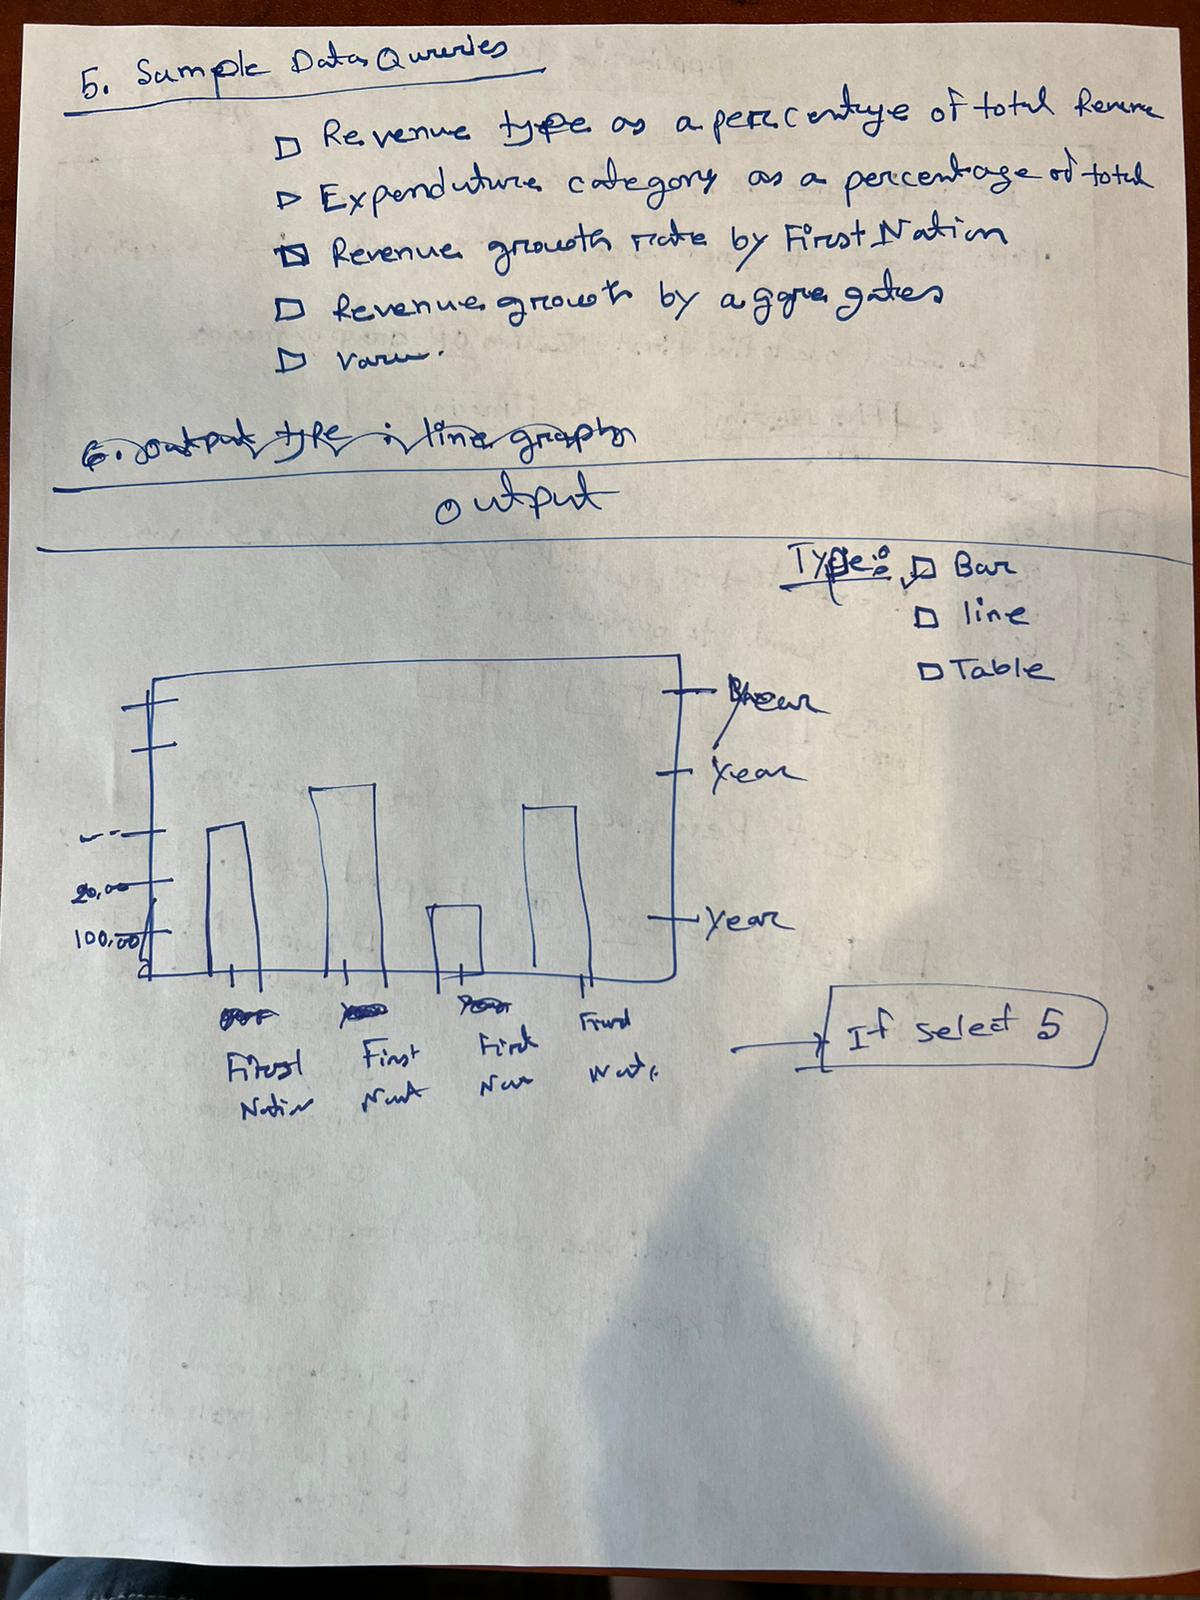 5. Sample Data Qureries
Revenue type as a percentage of total Revenue
Expenduture category as a percentage of total
Revenue growth rate by First Nation
Revenue growth by aggregates
6. output type : line graph
output
Type: Bar
line
Table
Year
Year
20,00
100,00
Year
First First First
Nation
If select 5